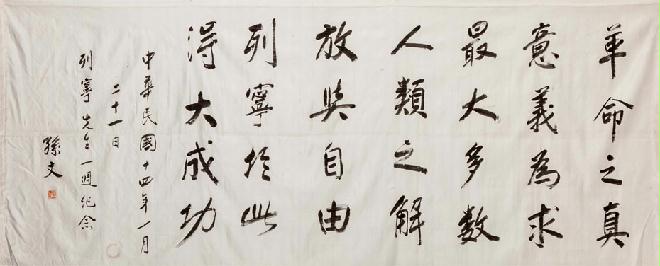 革命之真
意義為求
最大多数
人類之解
放與自由
列寧於此
得大成功
中華民國十四年一月
二十一日
列寧先生一週紀念
孫文